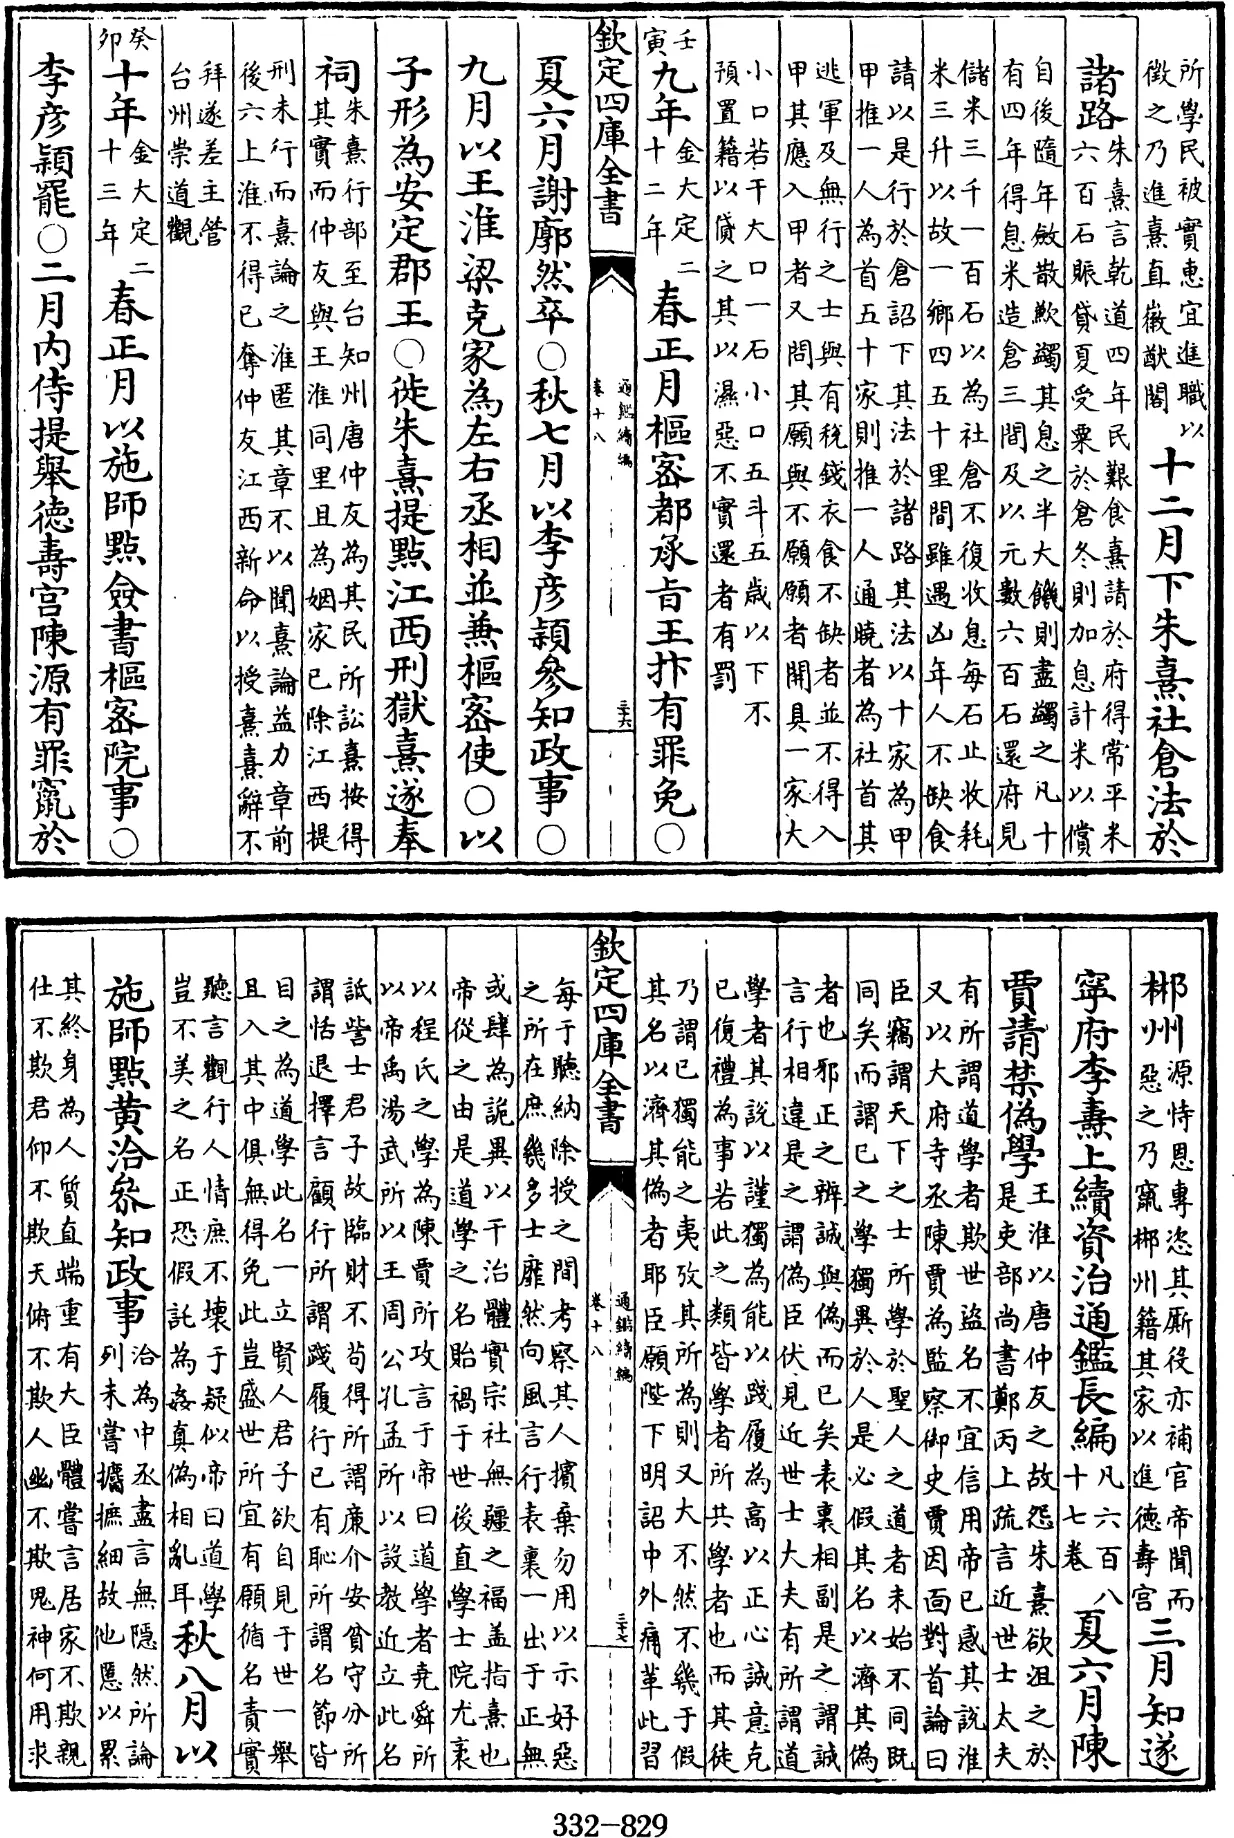 所學民被實惠宜進職以
徵之乃進熹直徽猷閣
十二月下朱熹社倉法於
諸路
朱熹言乾道四年民艱食熹請於府得常平米
六百石賑貸夏受粟於倉冬則加息計米以償
自後隨年斂散歉蠲其息之半大饑則盡蠲之凡十
有四年得息米造倉三間及以元數六百石還府見
儲米三千一百石以為社倉不復收息每石止收耗
米三升以故一鄉四五十里間雖遇凶年人不缺食
請以是行於倉詔下其法於諸路其法以十家為甲
甲推一人為首五十家則推一人通曉者為社首其
逃軍及無行之士與有稅錢衣食不缺者並不得入
甲其應入甲者又問其願與不願願者開具一家大
小口若干大口一石小口五斗五歲以下不
預置籍以貸之其以濕惡不實還者有罰
壬寅
九年
金大定二
十二年
春正月樞密都承旨王抃有罪免○
欽定四庫全書
通鑑續編
卷十八
三十六
夏六月謝廓然卒○秋七月以李彥穎參知政事○
九月以王淮梁克家為左右丞相並兼樞密使○以
子彤為安定郡王○徙朱熹提點江西刑獄熹遂奉
祠
朱熹行部至台知州唐仲友為其民所訟熹按得
其實而仲友與王淮同里且為姻家已除江西提
刑未行而熹論之淮匿其章不以聞熹論益力章前
後六上淮不得已奪仲友江西新命以授熹熹辭不
拜遂差主管
台州崇道觀
癸卯
十年
金大定二
十三年
春正月以施師點僉書樞密院事○
李彥穎罷○二月內侍提舉德壽宮陳源有罪竄於
郴州
源恃恩專恣其廝役亦補官帝聞而
惡之乃竄郴州籍其家以進德壽宮
三月知遂
寧府李燾上續資治通鑑長編
凡六百八
十七卷
夏六月陳
賈請禁偽學
王淮以唐仲友之故怨朱熹欲沮之於
是吏部尚書鄭丙上疏言近世士大夫
有所謂道學者欺世盜名不宜信用帝已惑其說淮
又以大府寺丞陳賈為監察御史賈因面對首論曰
臣竊謂天下之士所學於聖人之道者未始不同既
同矣而謂已之學獨異於人是必假其名以濟其偽
者也邪正之辨誠與偽而已矣表裏相副是之謂誠
言行相違是之謂偽臣伏見近世士大夫有所謂道
學者其說以謹獨為能以踐履為高以正心誠意克
已復禮為事若此之類皆學者所共學者也而其徒
乃謂已獨能之夷攷其所為則又大不然不幾于假
其名以濟其偽者耶臣願陛下明詔中外痛革此習
欽定四庫全書
通鑑續編
卷十八
三十七
每于聽納除授之間考察其人擯棄勿用以示好惡
之所在庶幾多士靡然向風言行表裏一出于正無
或肆為詭異以干治體實宗社無疆之福蓋指熹也
帝從之由是道學之名貽禍于世後直學士院尤袤
以程氏之學為陳賈所攻言于帝曰道學者堯舜所
以帝禹湯武所以王周公孔孟所以設教近立此名
詆訾士君子故臨財不苟得所謂廉介安貧守分所
謂恬退擇言顧行所謂踐履行已有恥所謂名節皆
目之為道學此名一立賢人君子欲自見于世一舉
且入其中俱無得免此豈盛世所宜有願循名責實
聽言觀行人情庶不壞于疑似帝曰道學
豈不美之名正恐假託為姦真偽相亂耳
秋八月以
施師點黃洽參知政事
洽為中丞盡言無隱然所論
列未嘗攟摭細故他慝以累
其終身為人質直端重有大臣體嘗言居家不欺親
仕不欺君仰不欺天俯不欺人幽不欺鬼神何用求
332-829